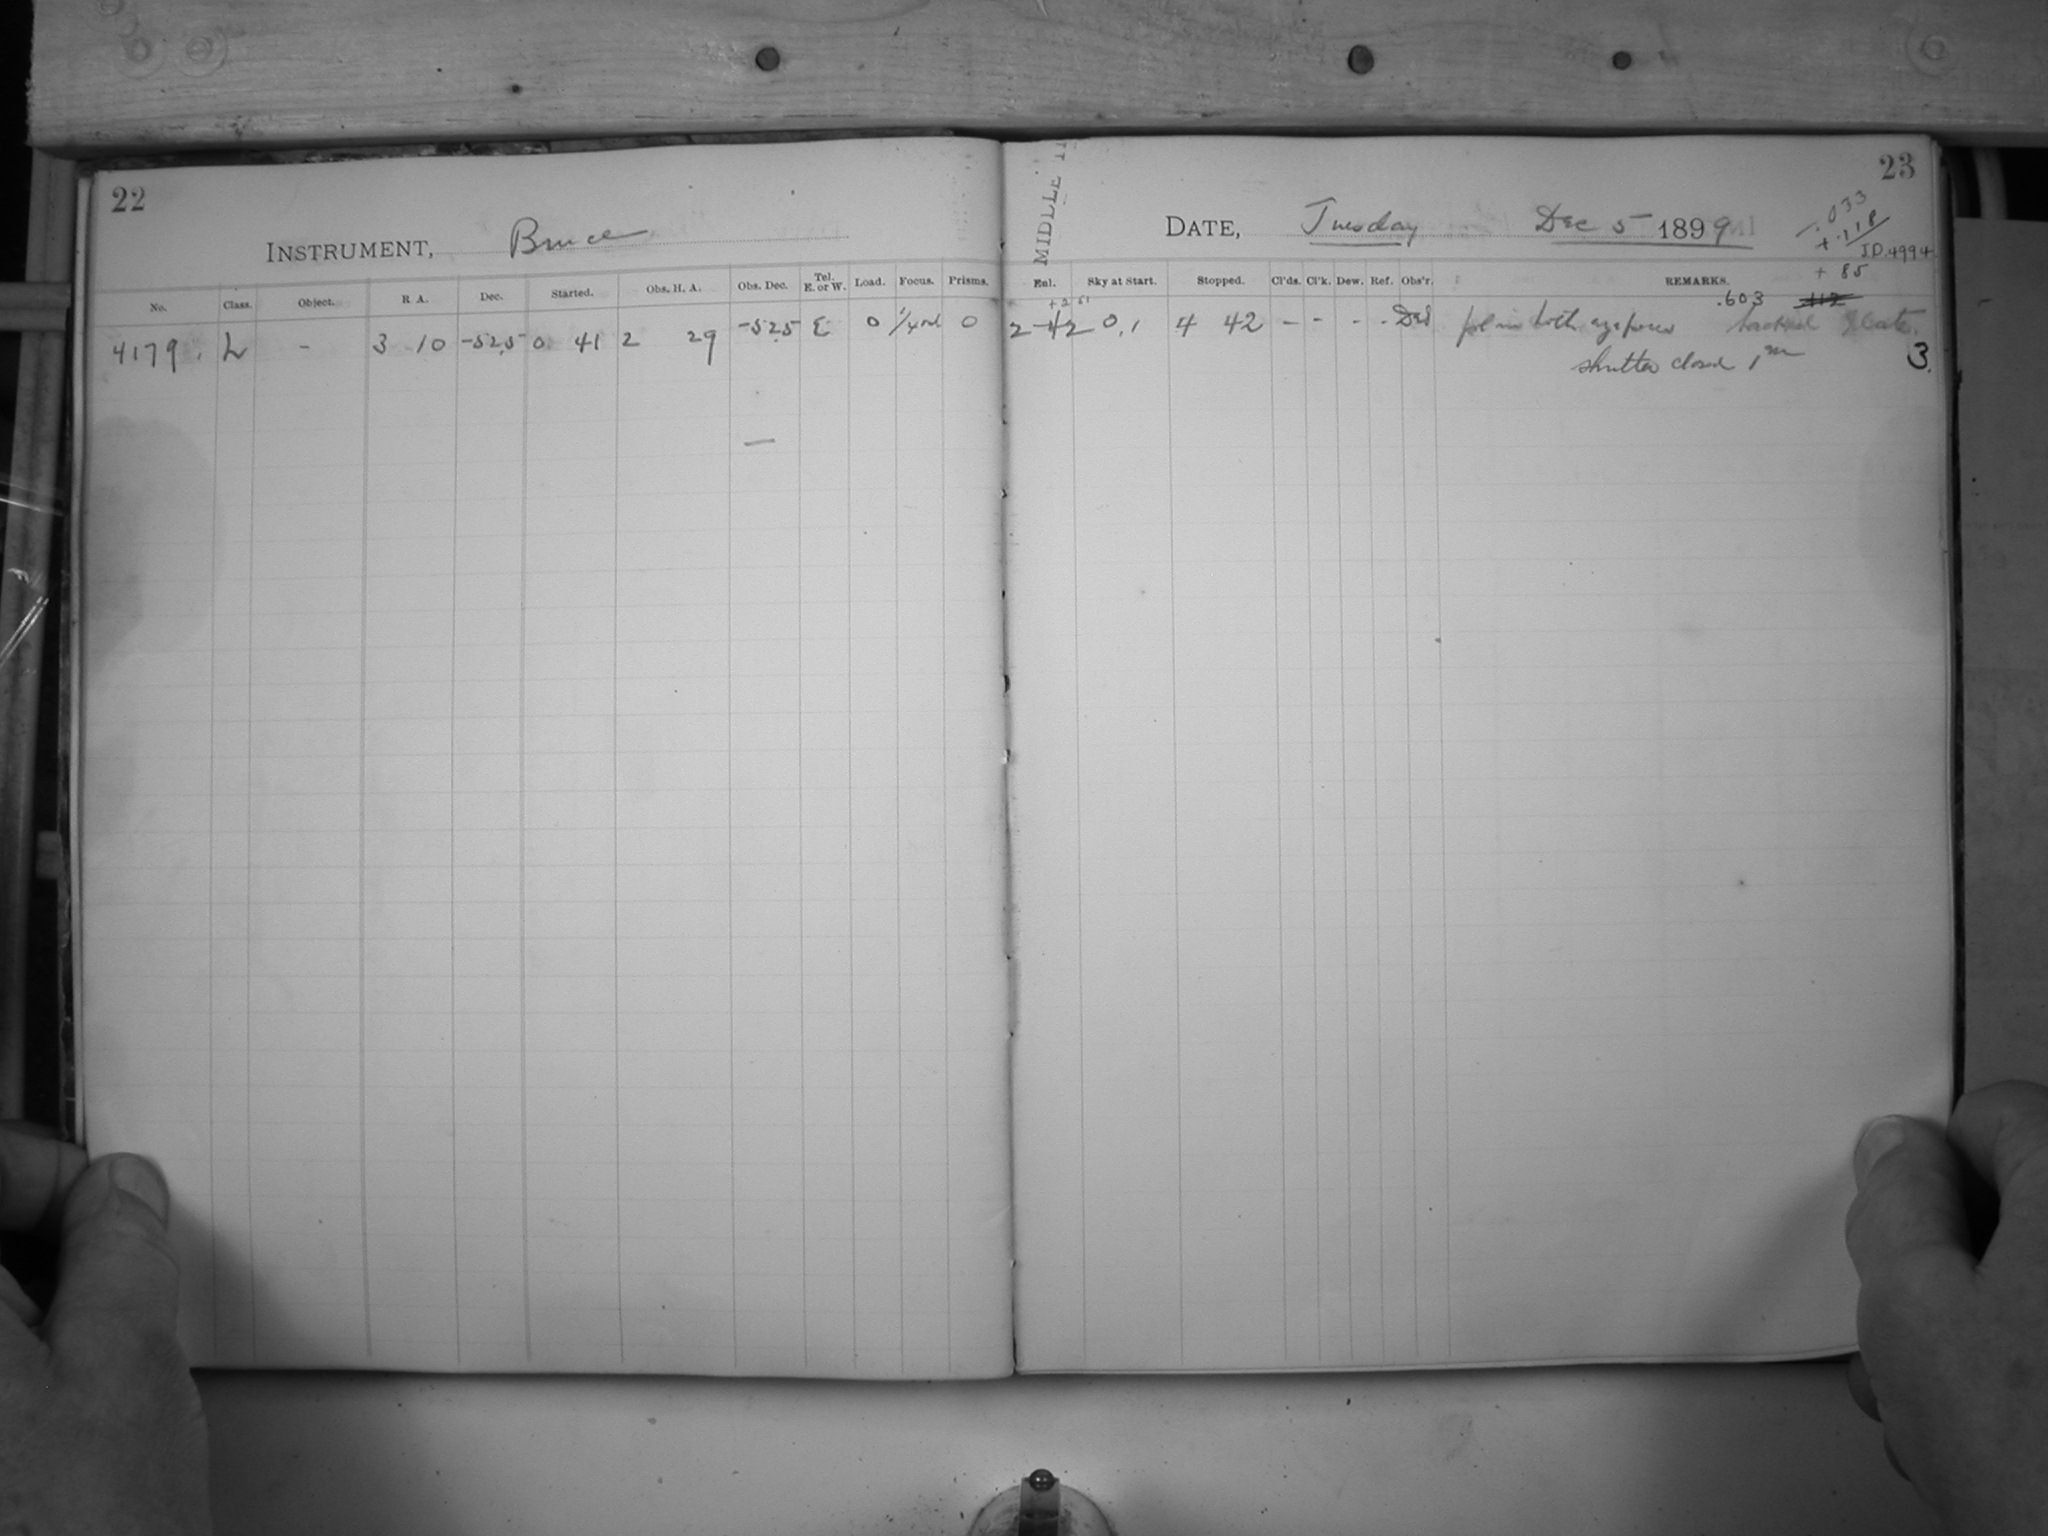 22
INSTRUMENT, Bruce
No. Class. Object. R A. Dec. Started. Obs. H. A. Obs. Dec. Tel. E. or W. Load. Focus. Prisms.
4179. L - 3 10 -52.5 0 41 2 29 -52.5 E 0 0
23
MIDDLE
DATE, Tuesday Dec 5 1899
.033
+.118
J.D. 4994
+ 85
Enl. Sky at Start. Stopped. Cl'ds. Cl'k. Dew. Ref. Obs'r. REMARKS.
.603
2 0,1 4 42 - - - - in both
shutter closed 1m
3.